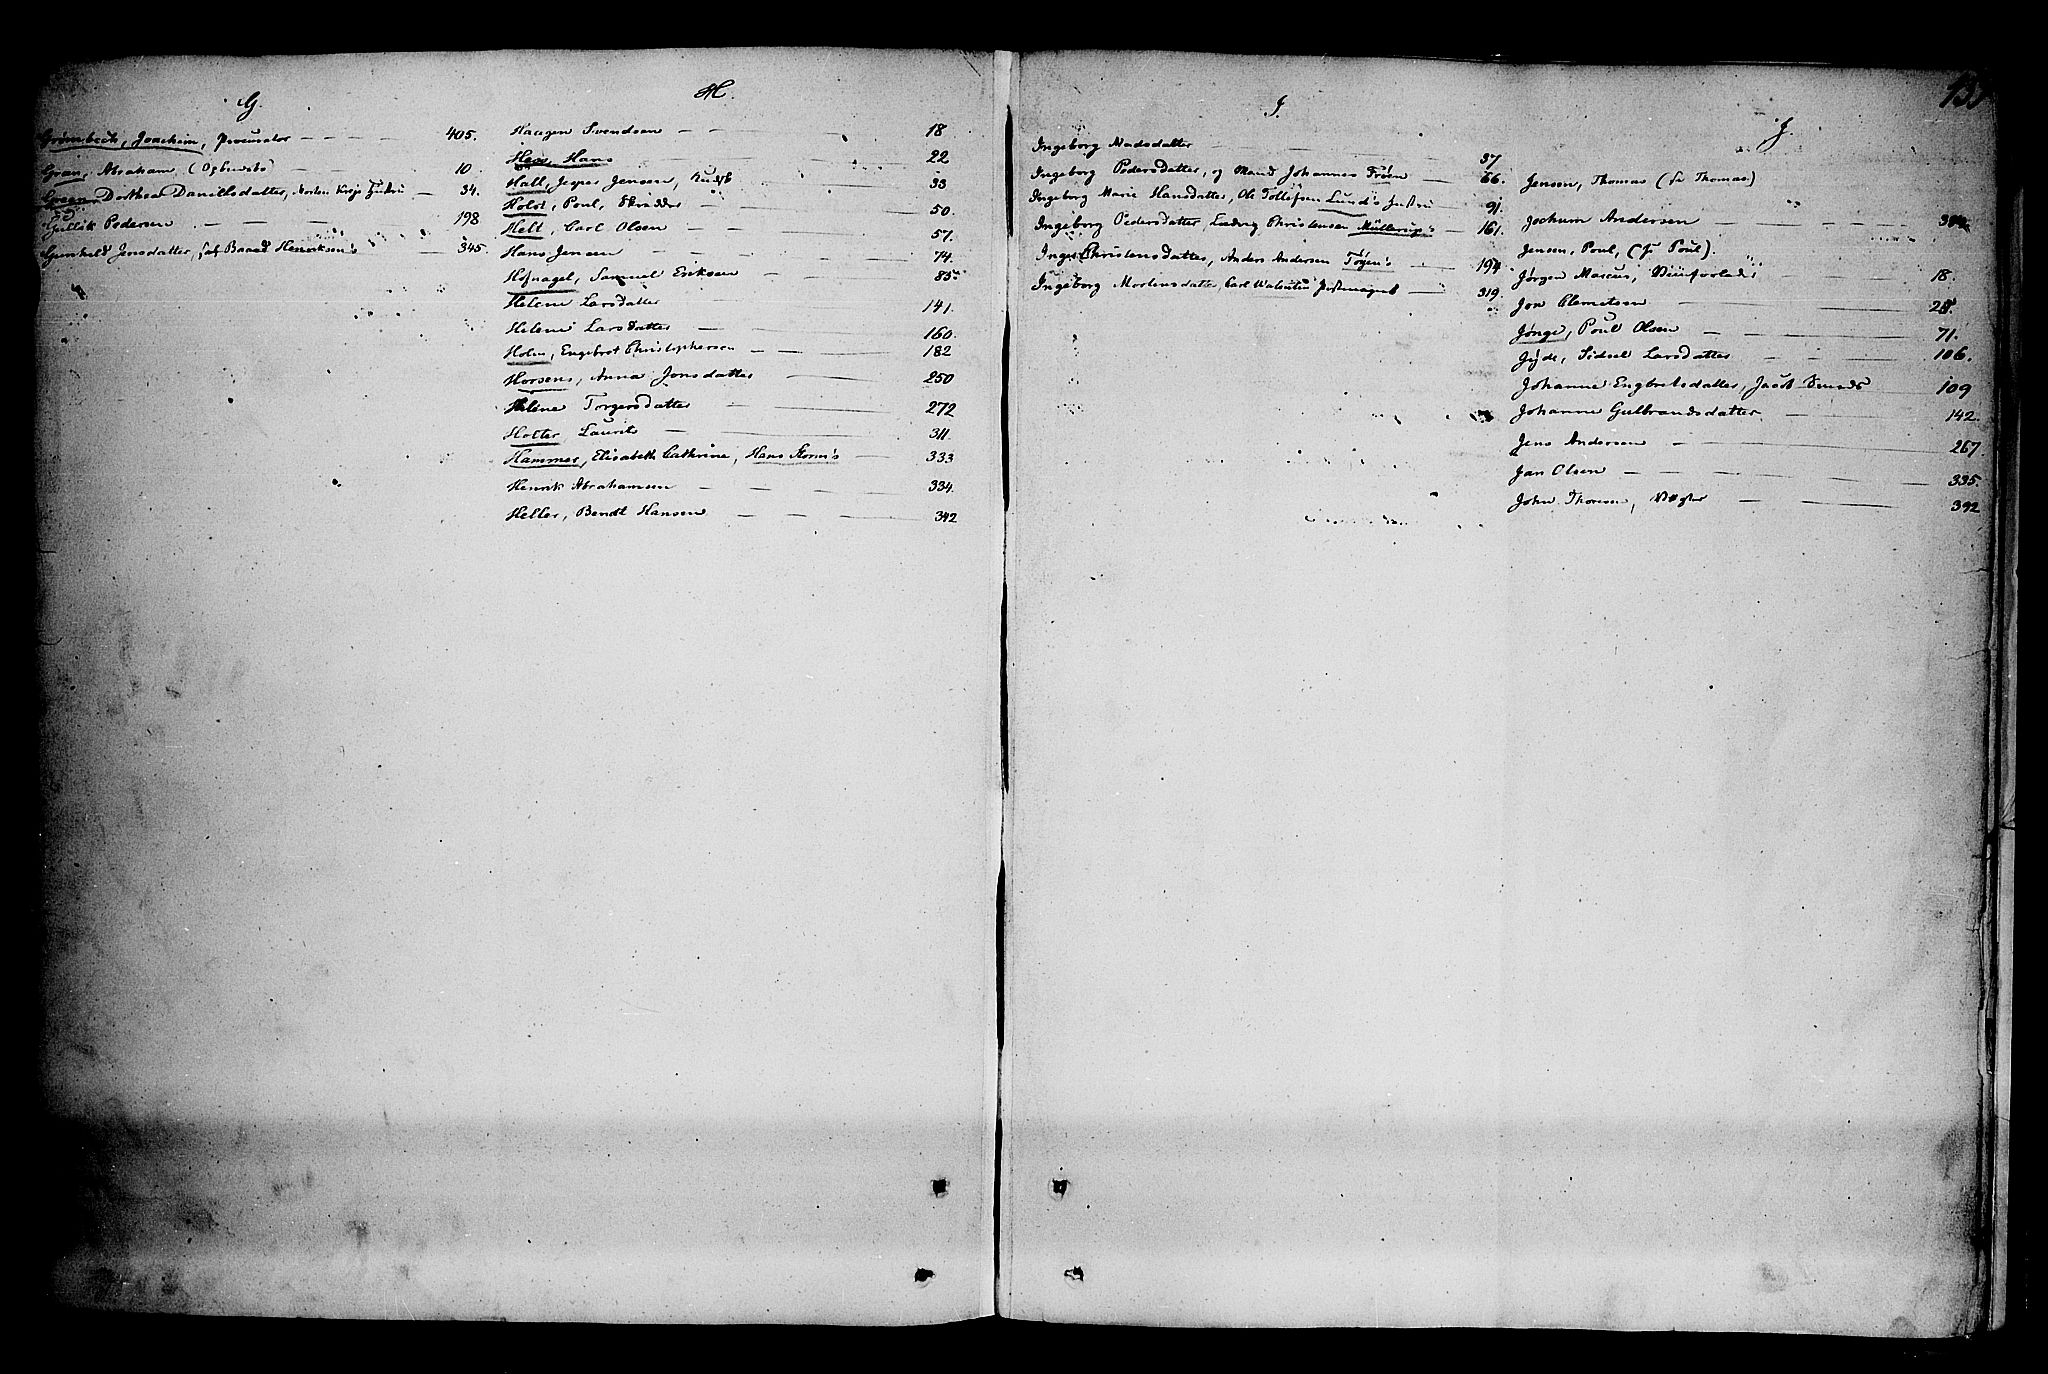 G.
Grønbeck, Joachim, Procurator — 405.
Gran, Abraham — 10.
Green, Dorthea Danielsdatter, Morten — 34.
Gullik Pedersen — 198
Gunhild Jensdatter, Baard Henriksen's — 345.
H.
Haagen Svendsen — 18
Hess, Hans — 22
Hall, Jesper Jensen, — 33
Holst, Poul, Skrædder — 50.
Helt, Carl Olsen — 57.
Hans Jensen — 74.
Hofnagel, Samuel Eriksen — 85
Helene Larsdatter — 141.
Helene Larsdatter — 160.
Holm, Engebret Christophersen — 182
Horsens, Anna Jonsdatter — 250
Helene Torgersdatter — 272
Holter, Laurits — 311.
Hammer, Elisabeth Cathrine, Hans Storm's — 333
Henrik Abrahamsen — 334.
Heller, Bendt Hansen — 342
I.
Ingeborg Madsdatter — 37
Ingeborg Pedersdatter, og Mand Johannes Frøen — 66.
Ingeborg Marie Hansdatter, Ole Tollefsen Lund's — 91.
Ingeborg Pedersdatter, Ludvig Christensen Müllerup's — 161.
Inger Christensdatter, Anders Andersen — 194
Ingeborg Mortensdatter, Carl Valentin — 319.
J.
Jensen, Thomas (se Thomas)
Jochum Andersen
Jensen, Poul, (se Poul).
Jørgen Marcus, — 18.
Jon Clemetsen
Jønge, Poul Olsen — 71.
Jyde, Sidsel Larsdatter — 106.
Johanne Engbretsdatter, Jacob Smeds — 109
Johanne Gulbrandsdatter — 142.
Jens Andersen — 267.
Jan Olsen — 335.
John Thoresen, Vægter — 392